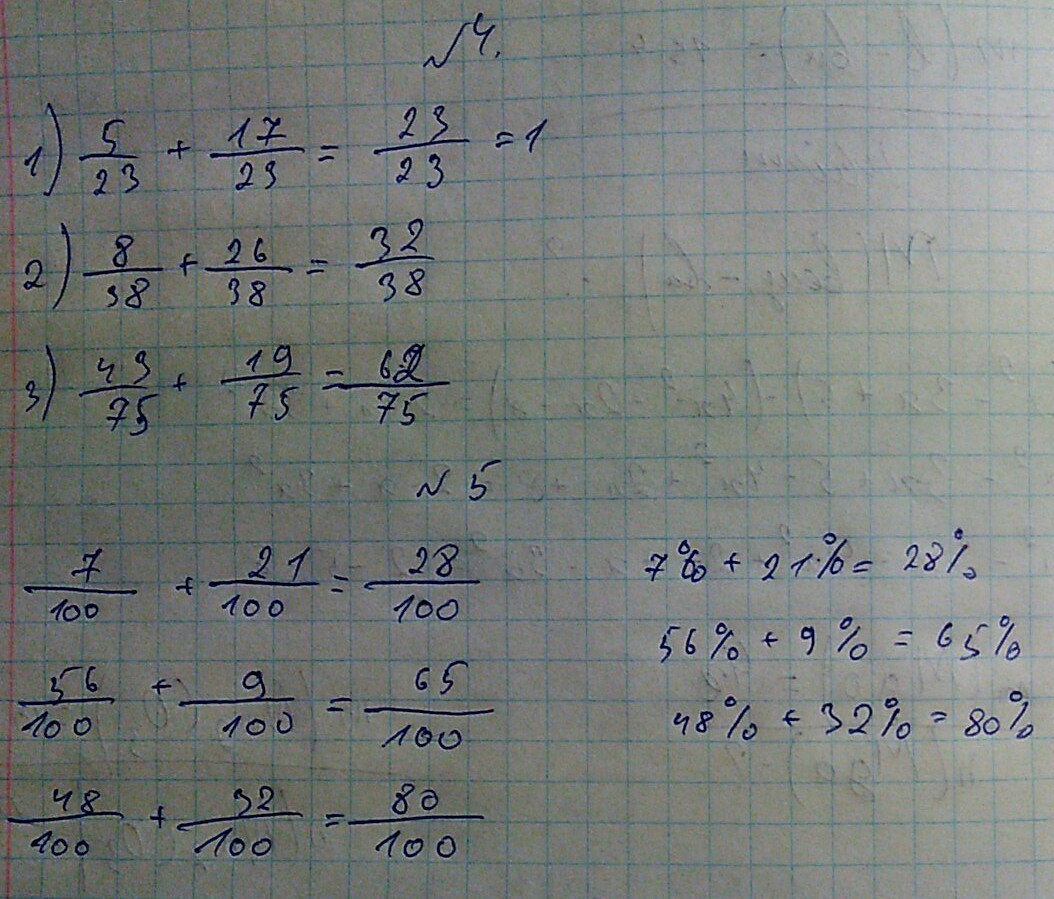 №4.
1) 5/23 + 17/23 = 23/23 = 1
2) 8/38 + 26/38 = 32/38
3) 43/75 + 19/75 = 62/75
№5
7/100 + 21/100 = 28/100 7% + 21% = 28%
56/100 + 9/100 = 65/100 56% + 9% = 65%
48/100 + 32/100 = 80/100 48% + 32% = 80%